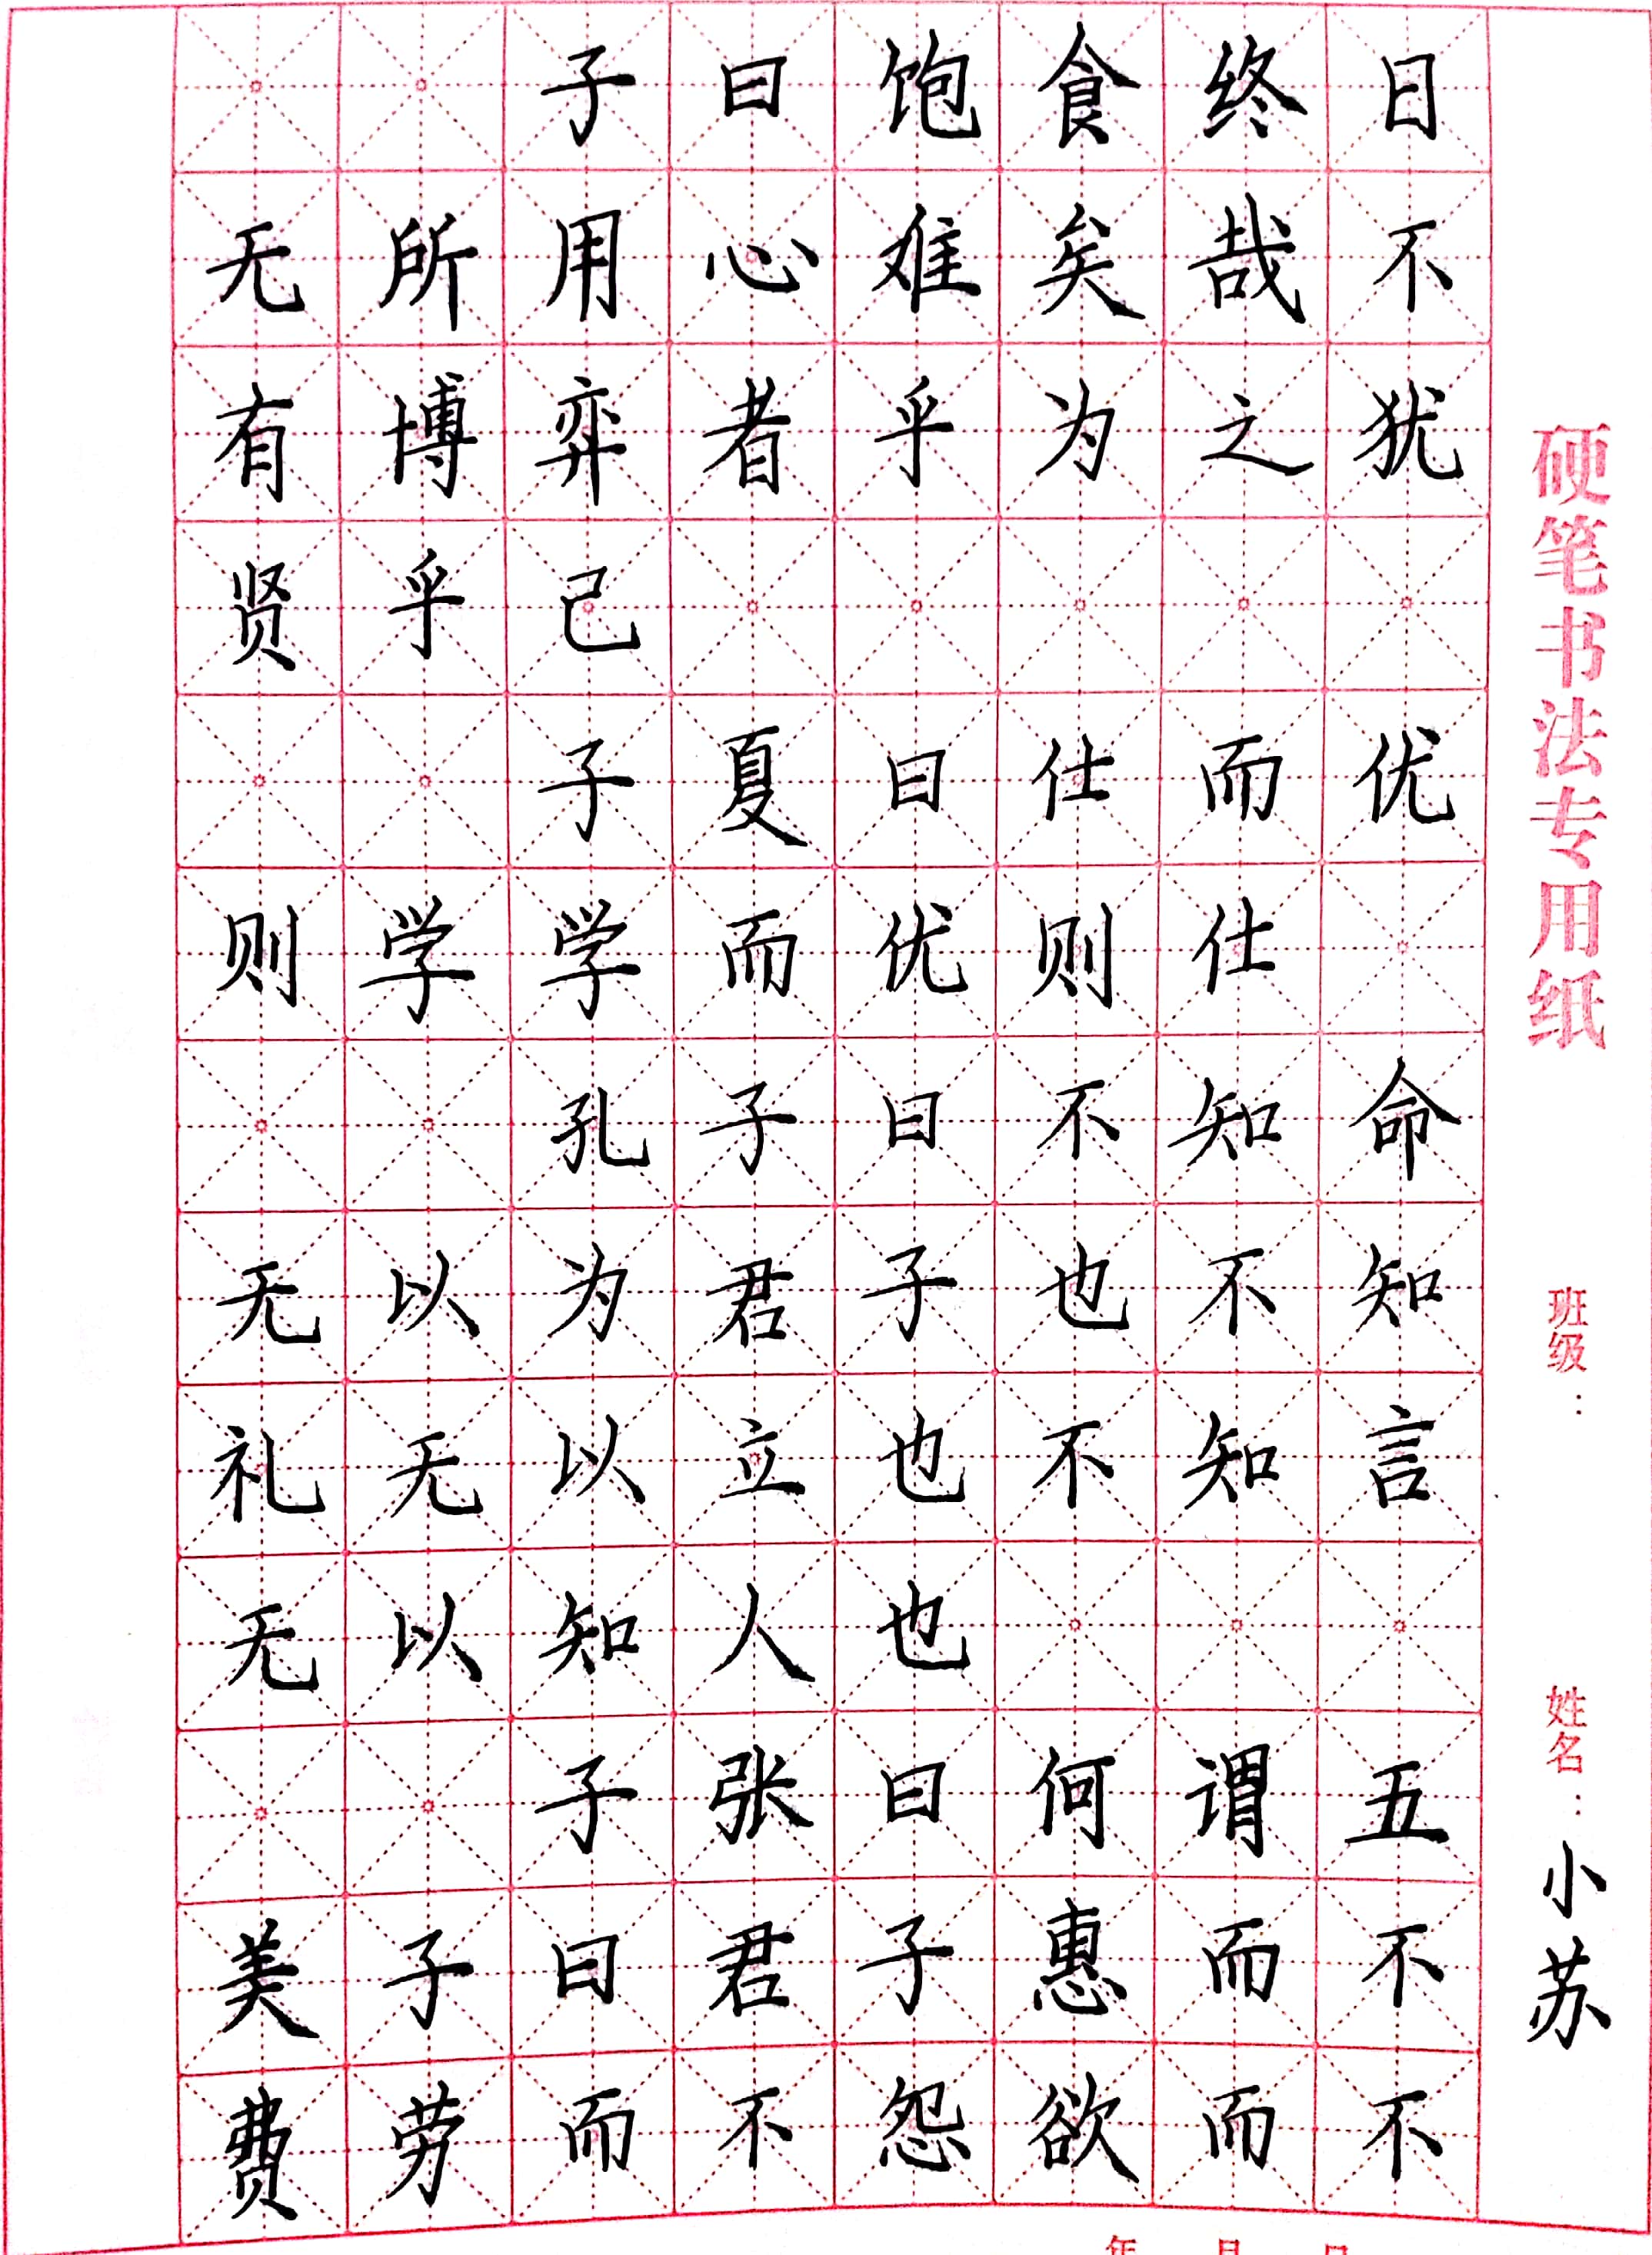 子曰饱食终日
无所用心难矣哉不
有博弈者乎为之犹
贤乎己
子夏曰仕而优
则学学而优则仕
孔子曰不知命
无以为君子也不知
礼无以立也不知言
无以知人也
子张曰何谓五
美子曰君子惠而不
费劳而不怨欲而不
硬笔书法专用纸
班级：
姓名：小苏
年 月 日